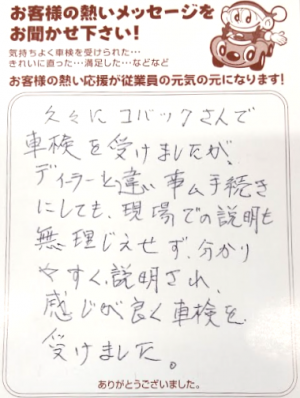 お客様の熱いメッセージを
お聞かせ下さい!
気持ちよく車検を受けられた…
きれいに直った…満足した…などなど
お客様の熱い応援が従業員の元気の元になります!
久々にコバックさんで
車検を受けましたが、
ディーラーと違い事ム手続き
にしても、現場での説明も
無理じえせず、分かり
やすく説明され、
感じが良く車検を
受けました。
ありがとうございました。